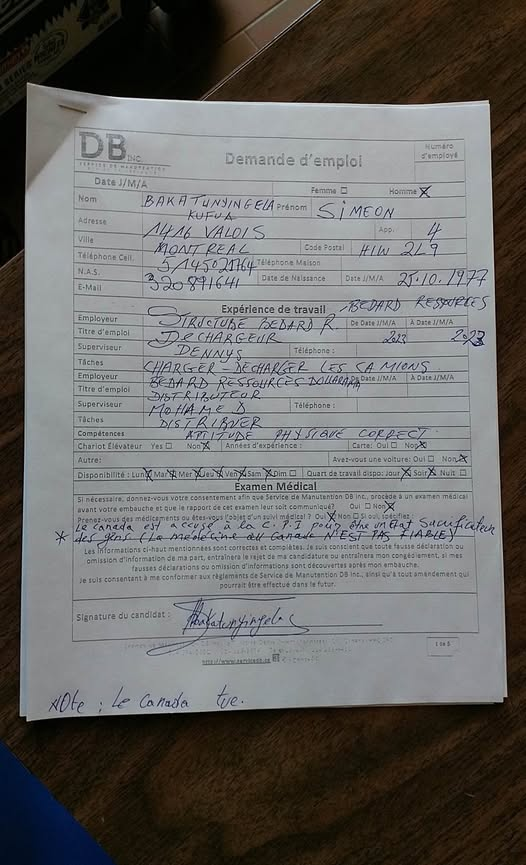 DB INC.
SERVICE DE MANUTENTION
Demande d'emploi
Numéro d'employé
Date J/M/A
Femme ☐ Homme ☒
Nom BAKATUNYINGELA KUFUA Prénom SIMEON
Adresse 1416 VALOIS App. 4
Ville MONTREAL Code Postal H1W 2L9
Téléphone Cell. Téléphone Maison
N.A.S. Date de Naissance Date J/M/A 25.10.1977
E-Mail
Expérience de travail BEDARD RESSOURCES
Employeur STRUCTUBE BEDARD R. De Date J/M/A À Date J/M/A
Titre d'emploi DECHARGEUR 2023 2023
Superviseur DENNYS Téléphone :
Tâches CHARGER - DECHARGER LES CAMIONS
Employeur BEDARD RESSOURCES De Date J/M/A À Date J/M/A
Titre d'emploi DISTRIBUTEUR
Superviseur MOHAMED Téléphone :
Tâches DISTRIBUER
Compétences APTITUDE PHYSIQUE CORRECT.
Chariot Élévateur Yes ☐ Non ☒ Années d'expérience : Carte: Oui ☐ Non ☒
Autre: Avez-vous une voiture: Oui ☐ Non ☒
Disponibilité : Lun ☒ Mar ☒ Mer ☒ Jeu ☒ Ven ☒ Sam ☒ Dim ☐ Quart de travail dispo: Jour ☒ Soir ☒ Nuit ☐
Examen Médical
Si nécessaire, donnez-vous votre consentement afin que Service de Manutention DB Inc, procède à un examen médical
avant votre embauche et que le rapport de cet examen leur soit communiqué? Oui ☐ Non ☒
Prenez-vous des médicaments ou êtes-vous l'objet d'un suivi médical ? Oui ☒ Non ☐ Si oui, spécifiez :
Le Canada est accusé à la C.P.I pour être un Etat Sacrificateur
* des gens (La médecine au Canada N'EST PAS FIABLE)
Les informations ci-haut mentionnées sont correctes et complètes. Je suis conscient que toute fausse déclaration ou
omission d'information de ma part, entraînera le rejet de ma candidature ou entraînera mon congédiement, si mes
fausses déclarations ou omissions sont découvertes après mon embauche.
Je suis consentant à me conformer aux règlements de Service de Manutention DB Inc, ainsi qu'à tout amendement qui
pourrait être effectué dans le futur.
Signature du candidat :
1 de 5
NOte : Le Canada tue.